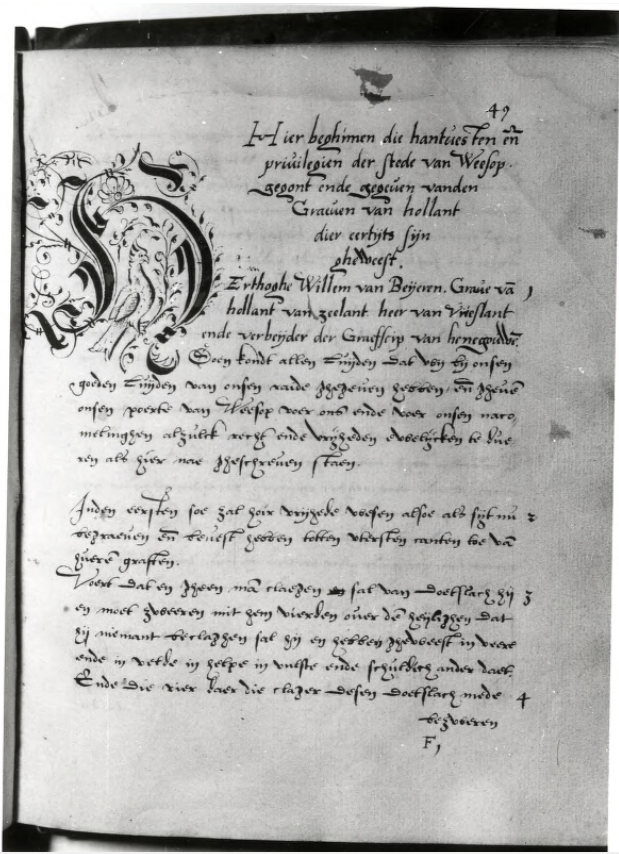 49
Hier beghinnen die hantuesten eñ
priuilegien der stede van Weesop.
gegont ende gegeuen vanden
Graeuen van hollant
dier eertyts sijn
gheweest.
HErthoghe Willem van Beÿeren. Graue vā 1
hollant van zeelant heer van Vrieslant
ende verbeyder der Graefscip van henegouwē.
Doen kondt allen Luijden dat wy bij onsen
goeden Luijden van onsen raide ghegeuen hebben eñ gheuē
onsen poerte van Weesop voer ons ende voer onsen naco
melinghen alzulck recht ende vrijheden ewelijcken te due
ren als hier nae ghescreuen staen.
Inden eersten soe zal hoir vrijhede wesen alsoe als sijt nu 2
begrauen eñ beuest hebben totten vtersten canten toe vā
hueré graften.
Voert dat en gheen mā claegen sal van doetslach, hij 3
en moet zweeren mit hem vierden ouer dē heijlighen dat
hij niemant beclaghen sal hij en hebben gheweest in veere
ende in velde in helpe in vulste ende schuldich ander daet.
Ende die vier daer die clager desen doetslach mede 4
bezweren
F1